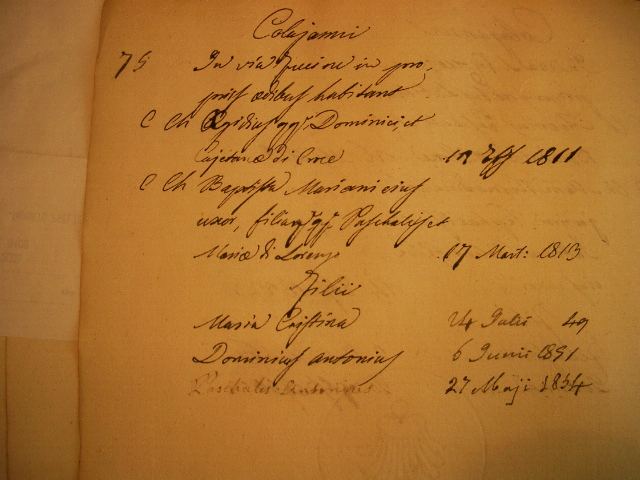 Colajanni
75 In via Fuccione in pro,
priis ædibus habitant
C Ch Ægidius qq.m Dominici, et
Cajetanæ di Croce 1811
C Ch Baptista Marianicius
uxor, filia qq.m Paschalis, et
Mariæ di Lorenzo 17 Mart: 1813
Filii
Maria Cristina 24 Julii 49
Dominicus Antonius 6 Junii 1851
Paschalis Antonius 27 Maji 1854